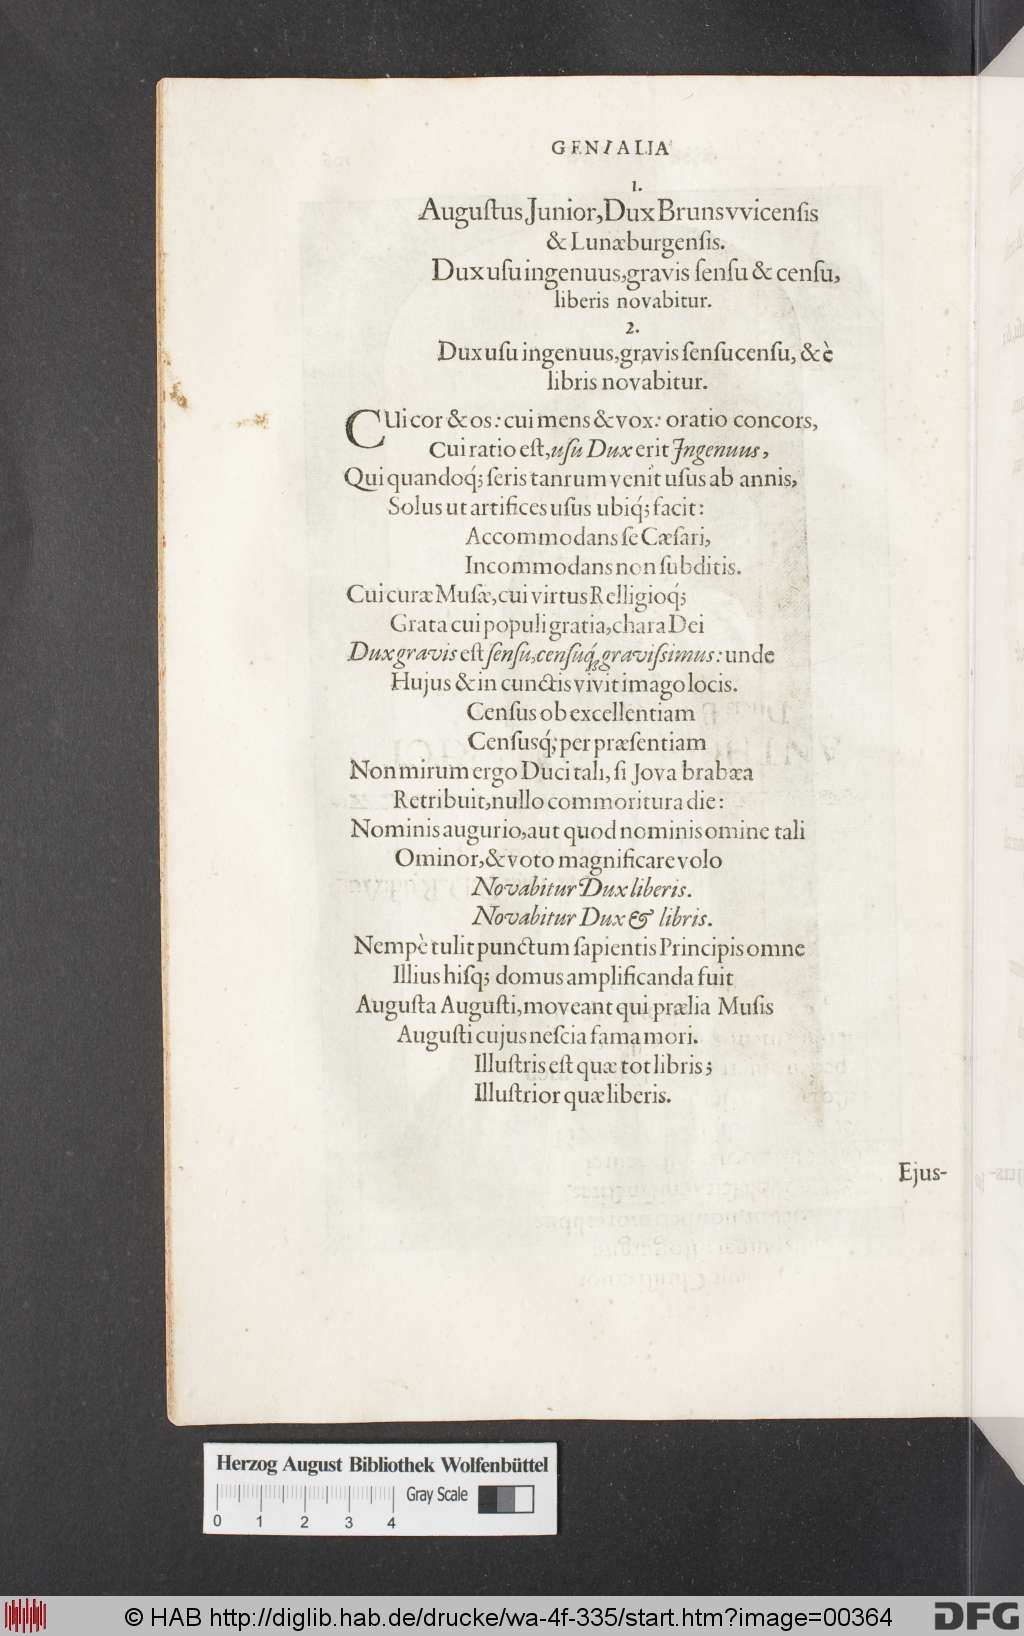 GENIALIA
1.
Auguſtus Junior, Dux Brunsvvicenſis
& Lunæburgenſis.
Dux uſu ingenuus, gravis ſenſu & cenſu,
liberis novabitur.
2.
Dux uſu ingenuus, gravis ſenſu cenſu, & è
libris novabitur.
CUi cor & os: cui mens & vox: oratio concors,
Cui ratio eſt, uſu Dux erit Ingenuus,
Qui quandoq́; ſeris tanrum venit uſus ab annis,
Solus ut artifices uſus ubiq́; facit:
Accommodans ſe Cæſari,
Incommodans non ſubditis.
Cui curæ Muſæ, cui virtus Relligioq́;
Grata cui populi gratia, chara Dei
Dux gravis eſt ſenſu, cenſuq́; graviſsimus: unde
Hujus & in cunctis vivit imago locis.
Cenſus ob excellentiam
Cenſusq́; per præſentiam
Non mirum ergo Duci tali, ſi Jova brabæa
Retribuit, nullo commoritura die:
Nominis augurio, aut quod nominis omine tali
Ominor, & voto magnificare volo
Novabitur Dux liberis.
Novabitur Dux & libris.
Nempè tulit punctum ſapientis Principis omne
Illius hiſq; domus amplificanda fuit
Auguſta Auguſti, moveant qui prælia Muſis
Auguſti cujus neſcia fama mori.
Illuſtris eſt quæ tot libris;
Illuſtrior quæ liberis.
Ejus-
Herzog August Bibliothek Wolfenbüttel
Gray Scale
0 1 2 3 4
© HAB http://diglib.hab.de/drucke/wa-4f-335/start.htm?image=00364
DFG